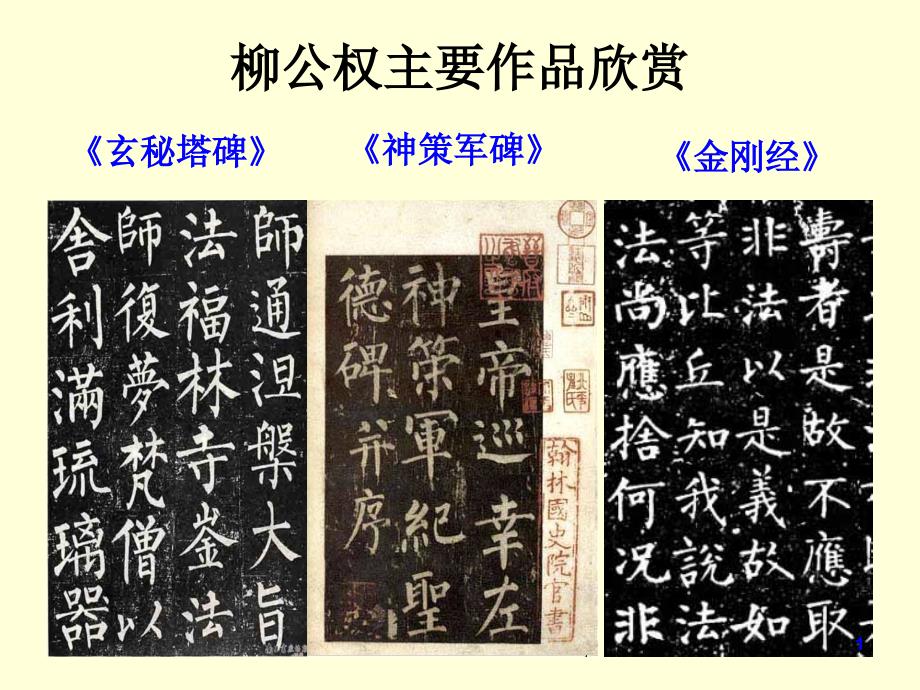 柳公权主要作品欣赏
《玄秘塔碑》
《神策军碑》
《金刚经》
師通涅槃大旨
法福林寺崟法
師復夢梵僧以
舍利滿琉璃器
皇帝巡幸左
神策軍紀聖
德碑并序
翰林國史院官書
壽者是故不應取
非法以是義故如
等比丘知我說法
法尚應捨何况非
1